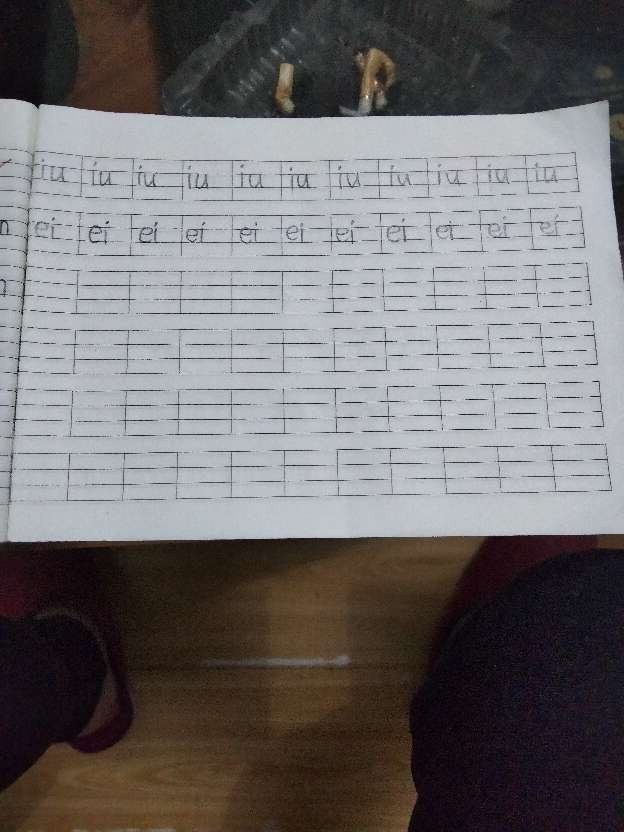 iu iu iu iu iu iu iu iu iu iu iu
ei ei ei ei ei ei ei ei ei ei ei